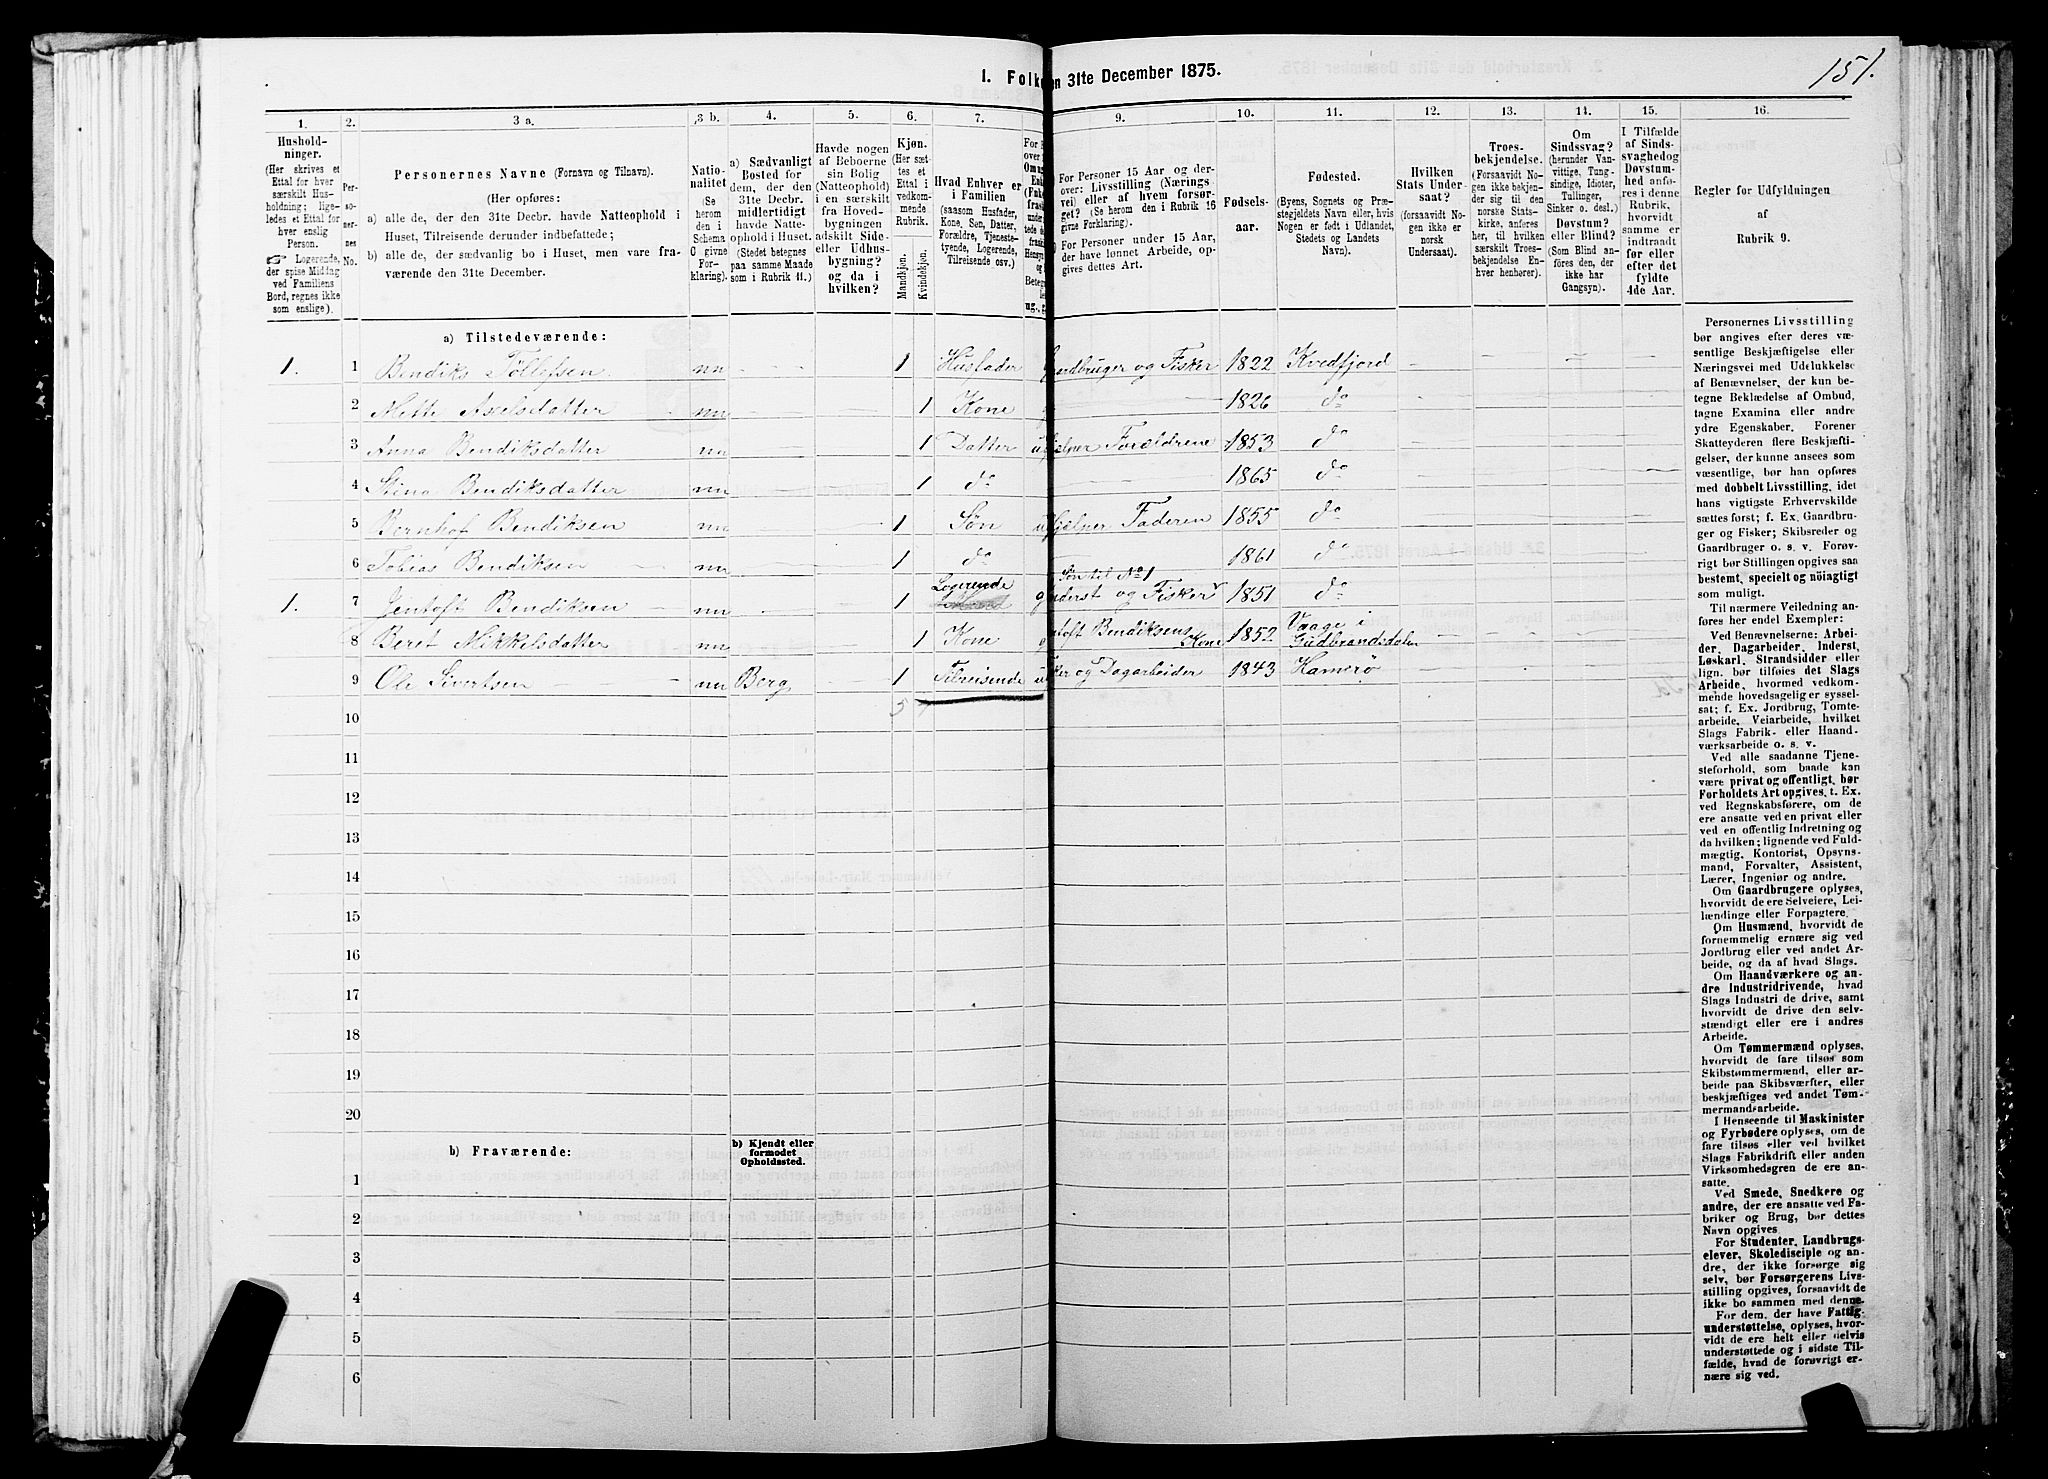 151.
1. Folk en 31te December 1875.
1. 2. 3 a. 3 b. 4. 5. 6. 7. 9. 10. 11. 12. 13. 14. 15. 16.
Hushold-
ninger.
(Her skrives et
Ettal for hver
særskilt Hus-
holdning; lige-
ledes et Ettal for
hver enslig
Person.
☞ Logerende,
der spise Middag
ved Familiens
Bord, regnes ikke
som enslige).
Per-
so-
ner-
nes
No.
Personernes Navne (Fornavn og Tilnavn).
(Her opføres:
a) alle de, der den 31te Decbr. havde Natteophold i
Huset, Tilreisende derunder indbefattede;
b) alle de, der sædvanlig bo i Huset, men vare fra-
værende den 31te December.
Natio-
nalitet
(Se
herom
den i
Schema
O givne
For-
klaring).
a) Sædvanligt
Bosted for
dem, der den
31te Decbr.
midlertidigt
havde Natte-
ophold i Huset.
(Stedet betegnes
paa samme Maade
som i Rubrik 11.)
Havde nogen
af Beboerne
sin Bolig
(Natteophold)
i en særskilt
fra Hoved-
bygningen
adskilt Side-
eller Udhus-
bygning?
og da i
hvilken?
Kjøn.
(Her sæt-
tes et
Ettal i
vedkom-
mende
Rubrik.
Mandkjøn.
Kvindekjøn.
Hvad Enhver er
i Familien
(saasom Husfader,
Kone, Søn, Datter,
Forældre, Tjeneste-
tyende, Logerende,
Tilreisende osv.)
For Personer 15 Aar og der-
over: Livsstilling (Nærings
vei) eller af hvem forsør-
get? (Se herom den i Rubrik 16
givne Forklaring).
For Personer under 15 Aar,
der have lønnet Arbeide, op-
gives dettes Art.
Fødsels-
aar.
Fødested.
(Byens, Sognets og Præ-
stegjeldets Navn eller, hvis
Nogen er født i Udlandet,
Stedets og Landets
Navn).
Hvilken
Stats Under-
saat?
(forsaavidt No-
gen ikke er
norsk
Undersaat).
Troes-
bekjendelse.
(Forsaavidt No-
gen ikke bekjen-
der sig til den
norske Stats-
kirke, anføres
her, til hvilken
særskilt Troes-
bekjendelse En-
hver henhører).
Om
Sindssvag?
(herunder Van-
vittige, Tung-
sindige, Idioter,
Tullinger,
Sinker o. desl.)
Døvstum?
eller Blind?
(Som Blind an-
føres den, der
ikke har
Gangsyn).
I Tilfælde
af Sinds-
svaghed og
Døvstum-
hed anfø-
res i denne
Rubrik,
hvorvidt
samme er
indtraadt
før eller
efter det
fyldte
4de Aar.
Regler for Udfyldningen
af
Rubrik 9.
a) Tilstedeværende:
1. 1 Bendiks Tollefsen nn 1 Husfader Gaardbruger og Fisker 1822 Kvedfjord
2 Mette Axelsdatter nn 1 Kone 1826 do
3 Anna Bendiksdatter nn 1 Datter u hjælper Forældrene 1853 do
4 Stina Bendiksdatter nn 1 do 1865 do
5 Bernhof Bendiksen nn 1 Søn u hjælper Faderen 1855 do
6 Tobias Bendiksen nn 1 do 1861 do
Søn til No 1
1. 7 Jentoft Bendiksen nn 1 Logerende g Inderst og Fisker 1851 do
8 Beret Mikkelsdatter nn 1 Kone g ntoft Bendiksens Kone 1852 Vaage i Gudbrandsdalen
9 Ole Sivertsen nn Borg 1 Tilreisende u ker og Dagarbeider 1843 Hamerø
5 4
10
11
12
13
14
15
16
17
18
19
20
b) Fraværende:
b) Kjendt eller
formodet
Opholdssted.
1
2
3
4
5
6
Personernes Livsstilling
bør angives efter deres væ-
sentlige Beskjæftigelse eller
Næringsvei med Udelukkelse
af Benævnelser, der kun be-
tegne Beklædelse af Ombud,
tagne Examina eller andre
ydre Egenskaber. Forener
Skatteyderen flere Beskjæfti-
gelser, der kunne ansees som
væsentlige, bør han opføres
med dobbelt Livsstilling, idet
hans vigtigste Erhvervskilde
sættes først; f. Ex. Gaardbru-
ger og Fisker; Skibsreder og
Gaardbruger o. s. v. Forøv-
rigt bør Stillingen opgives saa
bestemt, specielt og nøiagtigt
som muligt.
Til nærmere Veiledning an-
føres her endel Exempler:
Ved Benævnelserne: Arbei-
der, Dagarbeider, Inderst,
Løskarl, Strandsidder eller
lign. bør tilføies det Slags
Arbeide, hvormed vedkom-
mende hovedsagelig er syssel-
sat; f. Ex. Jordbrug, Tomte-
arbeide, Veiarbeide, hvilket
Slags Fabrik- eller Haand-
værksarbeide o. s. v.
Ved alle saadanne Tjene-
steforhold, som baade kan
være privat og offentligt, bør
Forholdets Art opgives, t. Ex.
ved Regnskabsførere, om de
ere ansatte ved en privat eller
ved en offentlig Indretning og
da hvilken; lignende ved Fuld-
mægtig, Kontorist, Opsyns-
mand, Forvalter, Assistent,
Lærer, Ingeniør og andre.
Om Gaardbrugere oplyses,
hvorvidt de ere Selveiere, Lei-
lændinge eller Forpagtere.
Om Husmænd, hvorvidt de
fornemmelig ernære sig ved
Jordbrug eller ved andet Ar-
beide, og da af hvad Slags.
Om Haandværkere og an-
dre Industridrivende, hvad
Slags Industri de drive, samt
hvorvidt de drive den selv-
stændigt eller ere i andres
Arbeide.
Om Tømmermænd oplyses,
hvorvidt de fare tilsøs som
Skibstømmermænd, eller ar-
beide paa Skibsværfter, eller
beskjæftiges ved andet Tøm-
mermandsarbeide.
I Henseende til Maskinister
og Fyrbødere oplyses, om de
fare tilsøs eller ved hvilket
Slags Fabrikdrift eller anden
Virksomhedsgren de ere an-
satte.
Ved Smede, Snedkere og
andre, der ere ansatte ved Fa-
briker og Brug, bør dettes
Navn opgives
For Studenter, Landbrugs-
elever, Skoledisciple og an-
dre, der ikke forsørge sig
selv, bør Forsørgerens Livs-
stilling opgives, forsaavidt de
ikke bo sammen med denne.
For dem, der have Fattig-
understøttelse, oplyses, hvor-
vidt de ere helt eller delvis
understøttede og i sidste Til-
fælde, hvad de forøvrigt er-
nære sig ved.